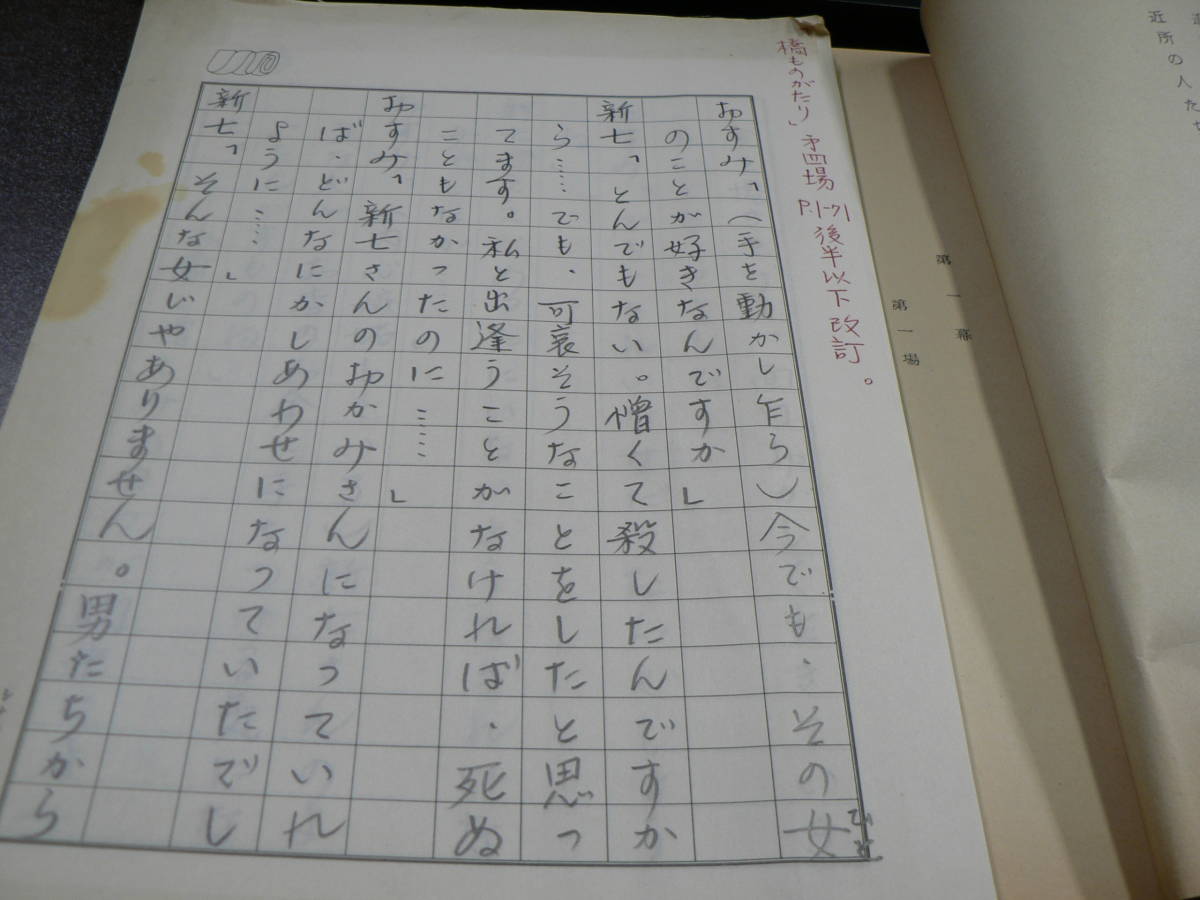 近所の人た
第一幕
第一場
橋ものがたり」第四場 P.1-71 後半以下 改訂。
おすみ「(手を動かし乍ら)今でも、その女
ひと
のことが好きなんですか」
新七「とんでもない。憎くて殺したんですか
ら……でも、可哀そうなことをしたと思っ
てます。私と出逢うことがなければ、死ぬ
こともなかったのに……」
おすみ「新七さんのおかみさんになっていれ
ば、どんなにかしあわせになっていたでし
ように……」
新七「そんな女じゃありません。男たちから